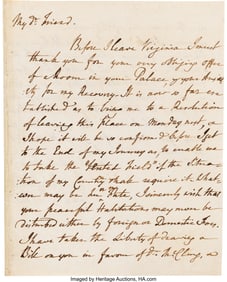 My Dr. Friend.
Before I leave Virginia I must
thank you for your very obliging offer
of a Room in your Palace, & your
ity for my Recovery. It is now so far
as to bring me to a Resolution
of leaving this Place on Monday next, &
I hope it will be so confirmed before I get
to the End of my Journey as to enable me
to take the Field if the Situa
tion of my Country shall require it. What
ever may be Fate, I sincerely wish that
your peaceful Habitations may never be
disturbed either by foreign or Domestic Foes.
I have taken the Liberty of drawing a
Bill on you in favour of Dr. McClurg, a
Imaged by Heritage Auctions, HA.com